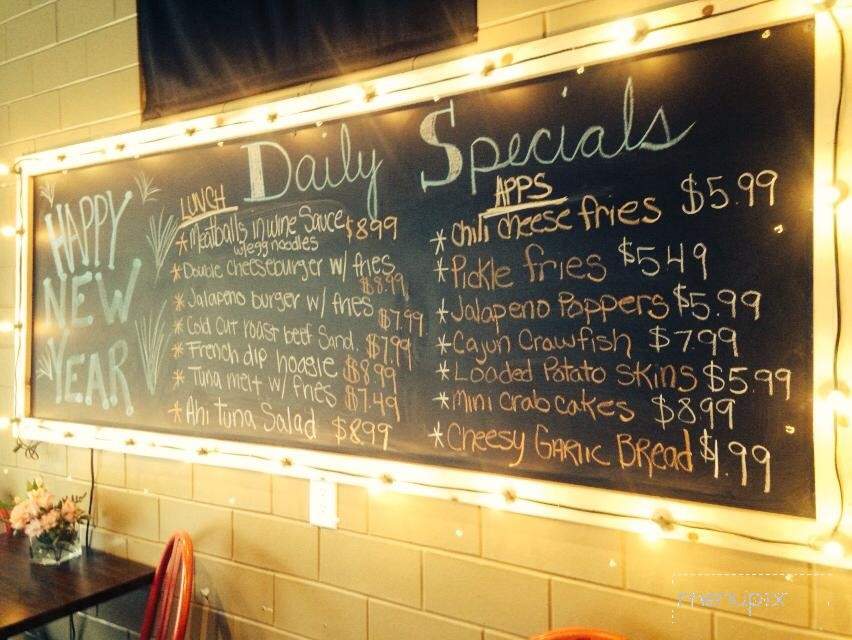 Daily Specials
HAPPY
NEW
YEAR
LUNCH
* Meatballs in wine Sauce $8.99
w/egg noodles
* Double cheeseburger w/ fries $8.99
* Jalapeno burger w/ fries $7.99
* Cold Cut roast beef Sand. $7.99
* French dip hoagie $8.99
* Tuna melt w/ fries $7.49
* Ahi Tuna Salad $8.99
APPS
* Chili cheese fries $5.99
* Pickle fries $5.49
* Jalapeno Poppers $5.99
* Cajun Crawfish $7.99
* Loaded Potato Skins $5.99
* Mini crab cakes $8.99
* Cheesy Garlic Bread $1.99
menupix